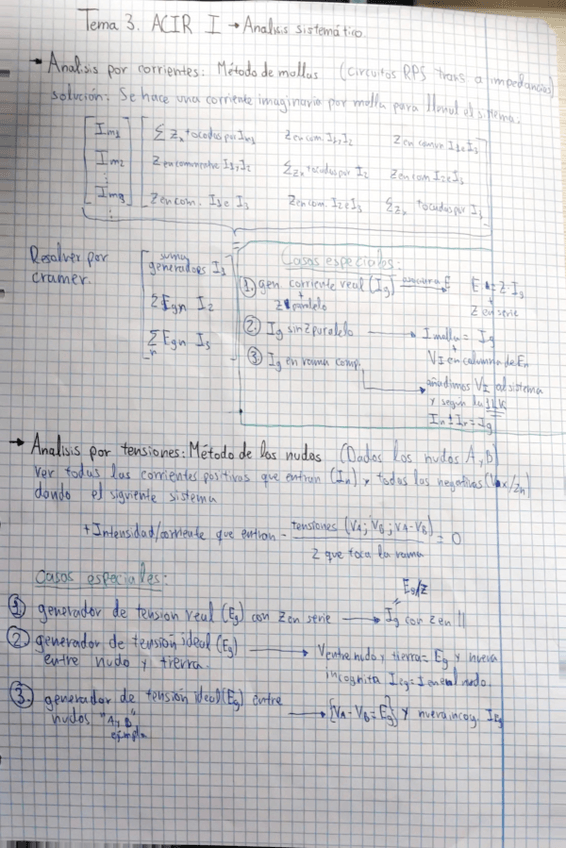 Tema 3. ACIR I → Analisis sistemático.
→ Analisis por corrientes: Método de mallas (circuitos RPS trans a impedancias)
solución: Se hace una corriente imaginario por malla para el sistema.
Im1 Σ Zn tocadas por Im1 Z en com. I1 y I2 Z en comun I1 e I3
Im2 Z en comun entre I1 y I2 Σ Zn tocadas por I2 Z en com I2 e I3
⋮
Im3 Z en com. I1 e I3 Z en com. I2 e I3 Σ Zn tocadas por I3
⋮
Resolver por
cramer.
suma
generadores I1
Σ Egn I2
Σ Egn I3
n
Casos especiales:
1. gen corriente real (Ig) → E E = Z·Ig
Z paralelo Z en serie
2 Ig sin Z paralelo → I malla = Ig
+
VI en columna de En
3 Ig en rama comp. → añadimos VI al sistema
y según la 1LK
In ± In = Ig
→ Analisis por tensiones: Método de los nudos (Dados los nudos A y B)
Ver todas las corrientes positivas que entran (In) y todas las negativas (Vx/Zn)
dando el siguiente sistema
+ Intensidad/corriente que entran - tensiones (VA; VB; VA-VB) / Z que toca la rama = 0
Casos especiales:
Eg/Z
1) generador de tension real (Eg) con Z en serie → Ig con Z en ||
2) generador de tensión ideal (Eg) → V entre nudo y tierra = Eg y nueva
entre nudo y tierra. incognita Ieg = I en el nudo.
3. generador de tensión ideal (Eg) entre → {VA - VB = Eg} y nueva incog. Ieg
nudos "A y B"
ejemplo